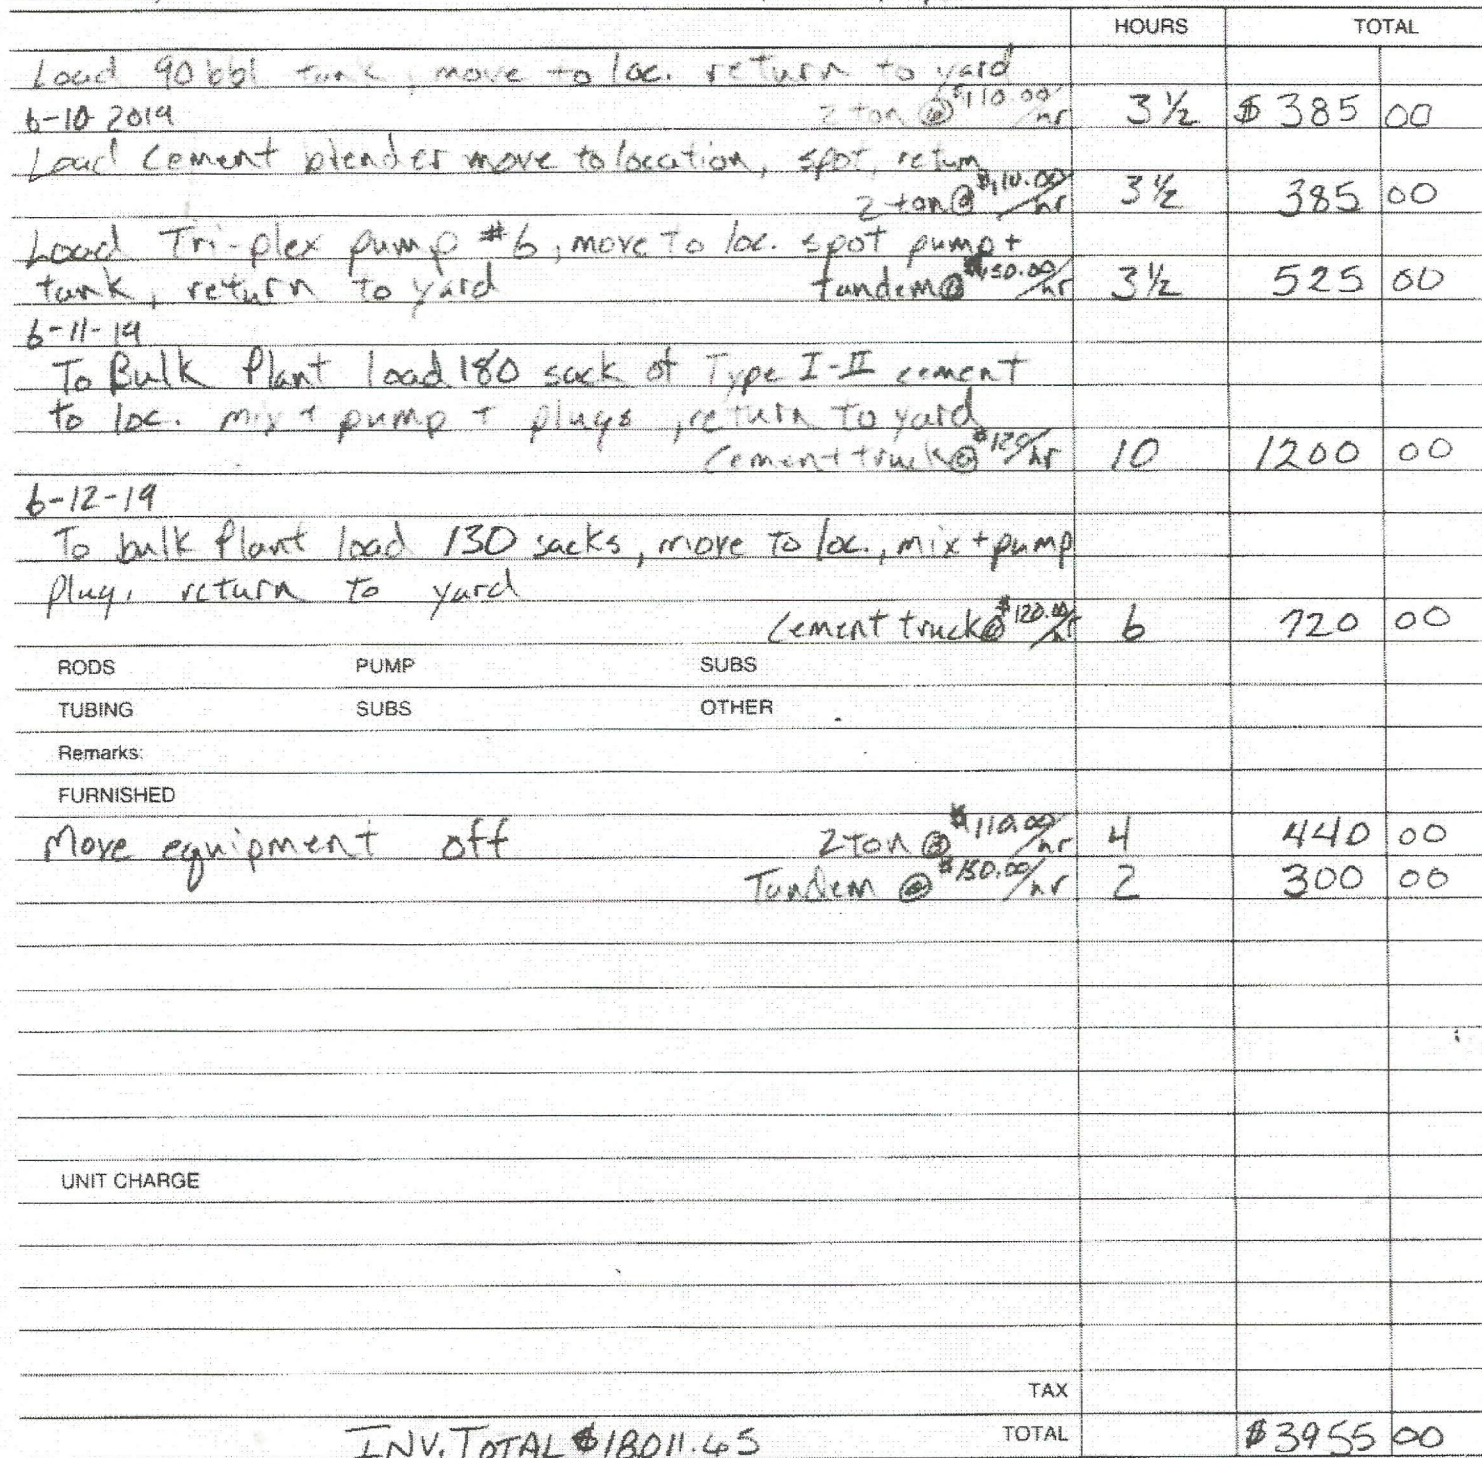 HOURS TOTAL
Load 90 bbl tank, move to loc. return to yard
6-10 2019 2 ton @ $110.00/hr 3½ $385 00
Load Cement blender move to location, spot, return
2 ton @ $110.00/hr 3½ 385 00
Load Tri-plex pump #6, move To loc. spot pump +
tank, return to yard tandem @ $150.00/hr 3½ 525 00
6-11-19
To Bulk Plant load 180 sack of Type I-II cement
to loc. mix + pump + plugs, return To yard
Cement truck @ $120/hr 10 1200 00
6-12-19
To bulk Plant load 130 sacks, move To loc., mix + pump
plug, return to yard
Cement truck @ $120.00/hr 6 720 00
RODS PUMP SUBS
TUBING SUBS OTHER
Remarks:
FURNISHED
Move equipment off 2 ton @ $110.00/hr 4 440 00
Tandem @ $150.00/hr 2 300 00
UNIT CHARGE
TAX
INV. TOTAL $18011.45 TOTAL $3955 00